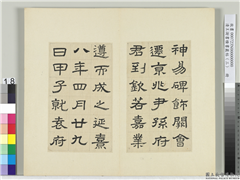 神易碑飾闕會
遷京兆尹孫府
君到欽若嘉業
遵而成之延熹
八年四月廿九
日甲子就袁府